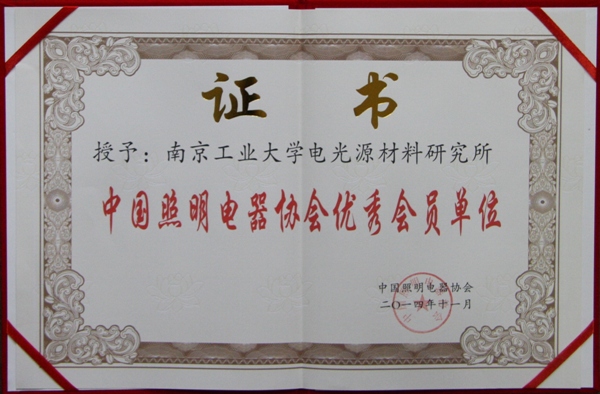 证 书
授予：南京工业大学电光源材料研究所
中国照明电器协会优秀会员单位
中国照明电器协会
二〇一四年十一月